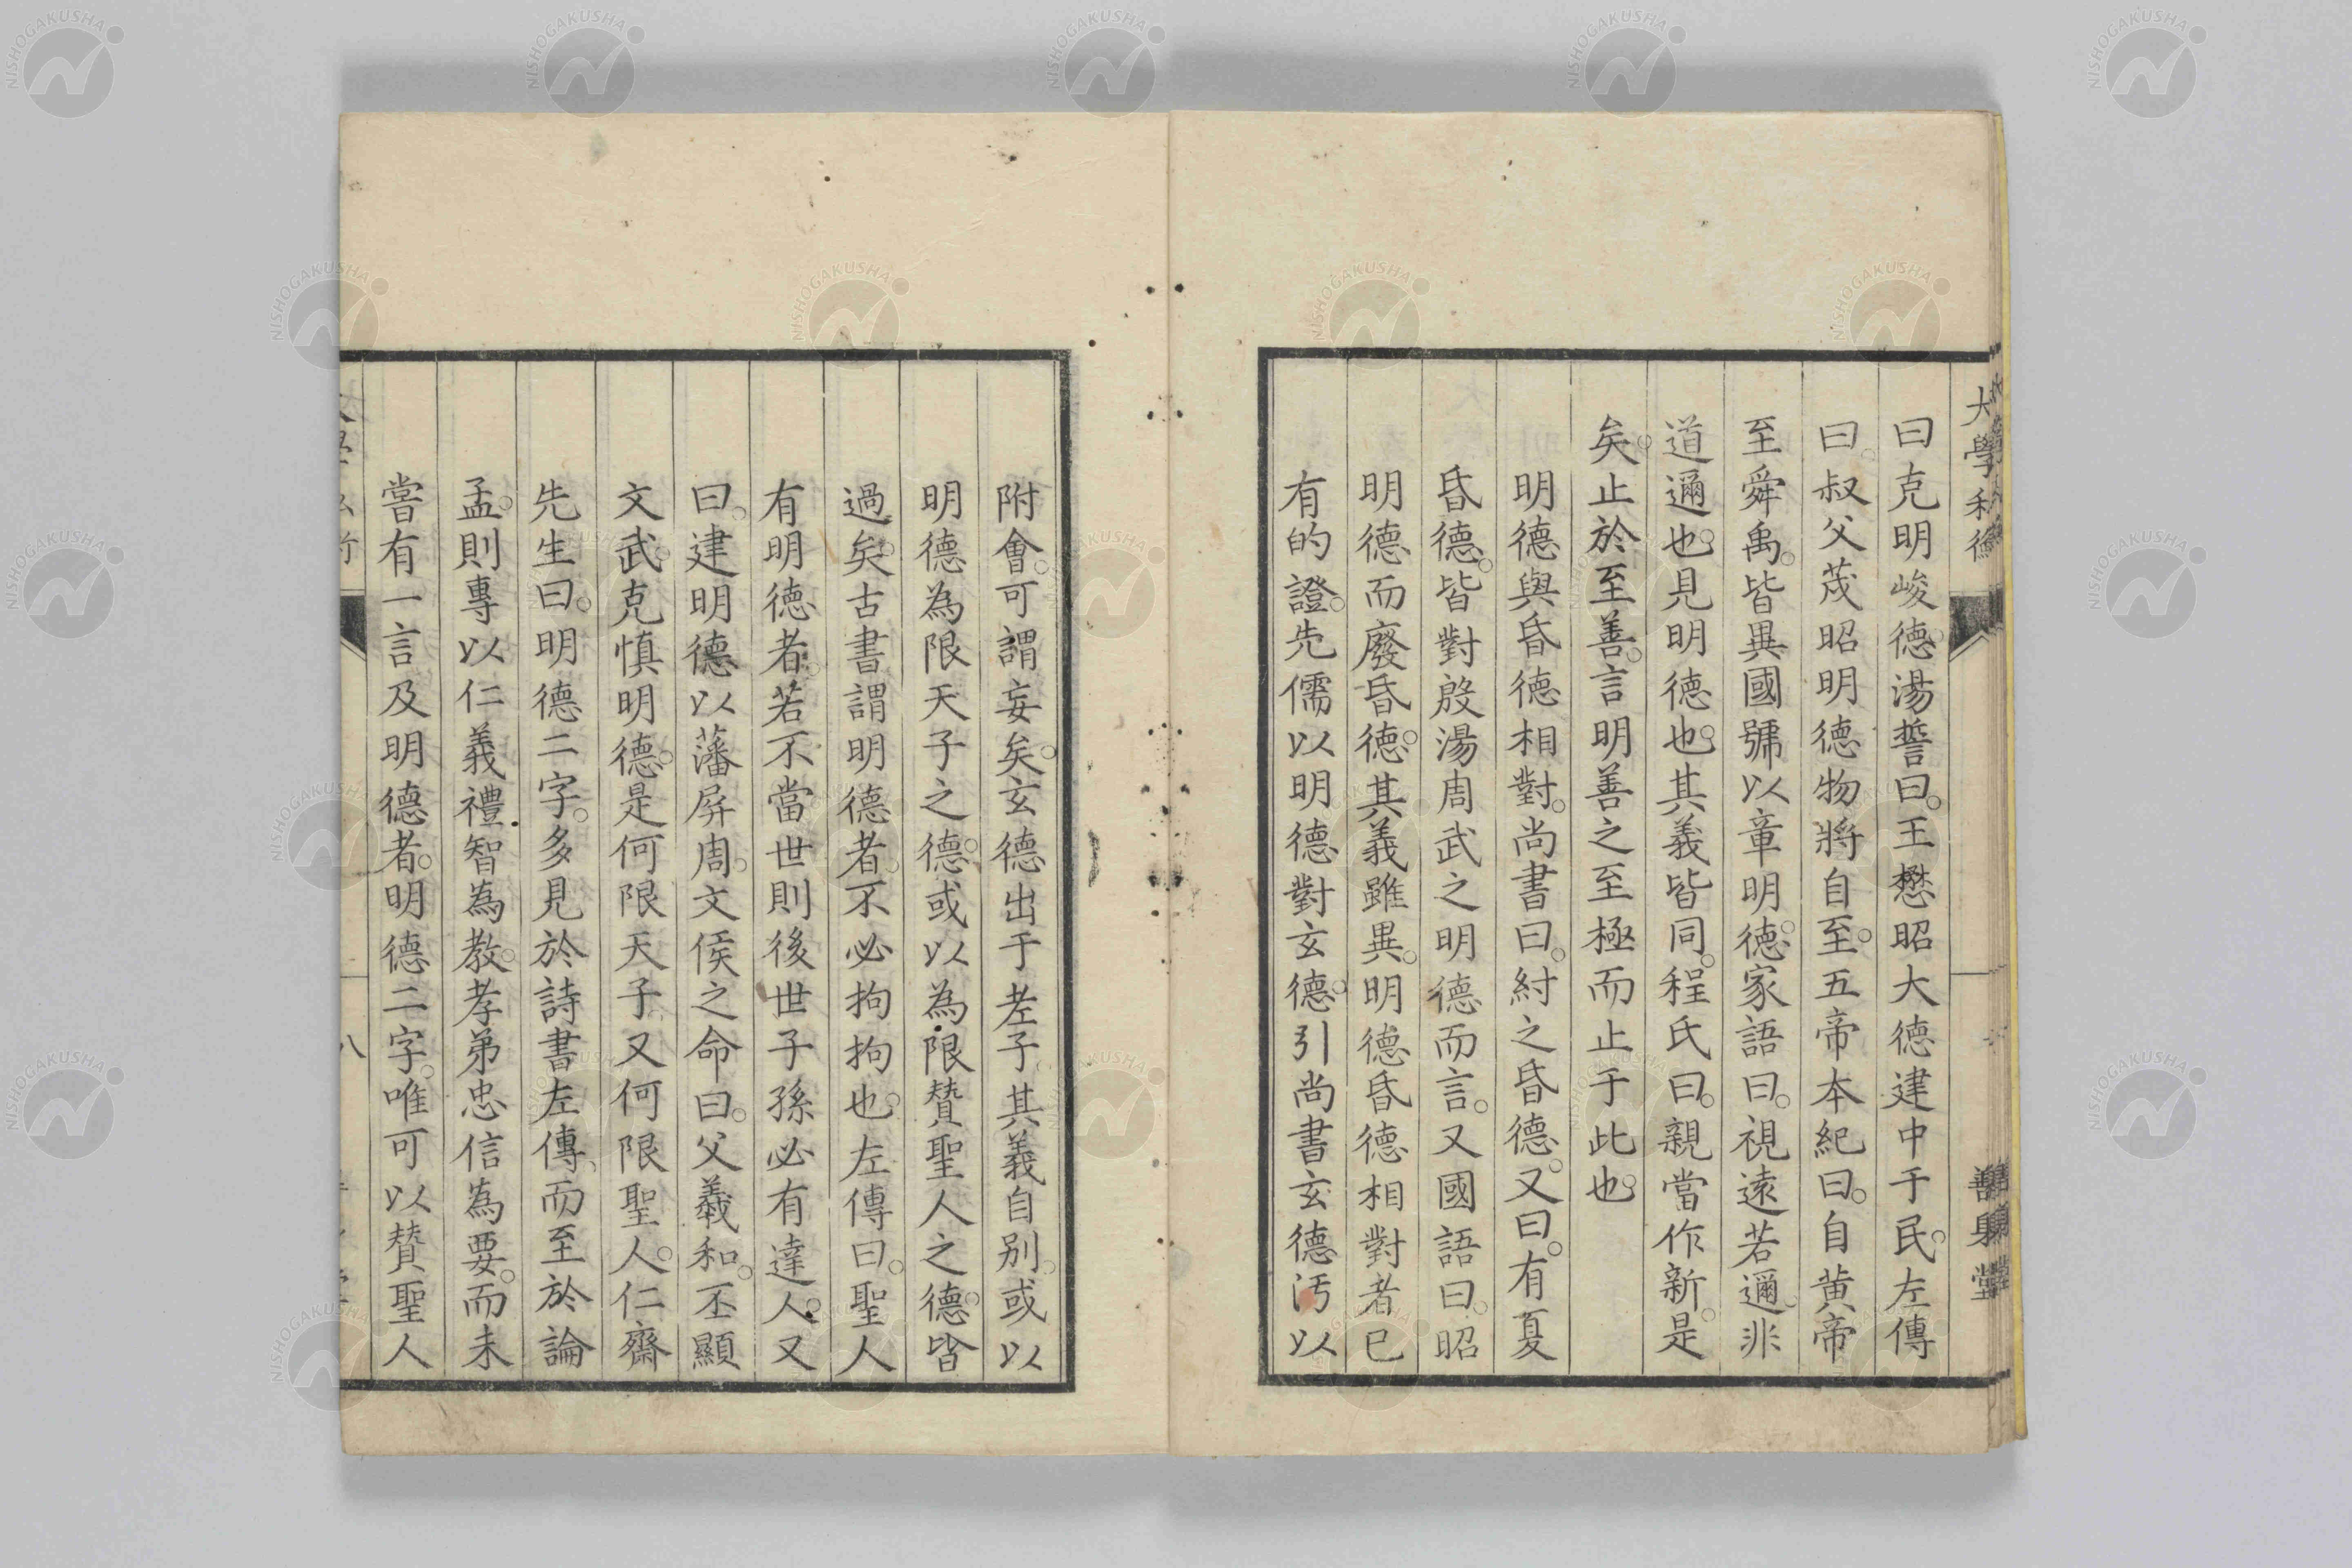 曰克明峻德湯誓曰。王懋昭大德建中于民。左傳
曰。叔父茂昭明德物將自至。五帝本紀曰。自黄帝
至舜禹。皆異國號以章明德。家語曰。視遠若邇。非
道邇也。見明德也。其義皆同。程氏曰。親當作新。是
矣。止於至善。言明善之至極而止于此也。
明德與昏德相對。尚書曰。紂之昏德。又曰。有夏
昏德。皆對殷湯周武之明德而言。又國語曰。昭
明德而廢昏德。其義雖異。明德昏德相對者已
有的證。先儒以明德對玄德。引尚書玄德汚以
附會。可謂妄矣。玄德出于老子。其義自别。或以
明德為限天子之德。或以為限贊聖人之德。皆
過矣。古書謂明德者。不必拘拘也。左傳曰。聖人
有明德者。若不當世則後世子孫必有達人。又
曰。建明德以藩屏周。文侯之命曰。父義和。丕顯
文武。克慎明德。是何限天子。又何限聖人。仁齋
先生曰。明德二字。多見於詩書左傳、而至於論
孟。則專以仁義禮智為教。孝弟忠信為要。而未
嘗有一言及明德者。明德二字。唯可以贊聖人
大學
八
善身堂
NISHOGAKUSHA